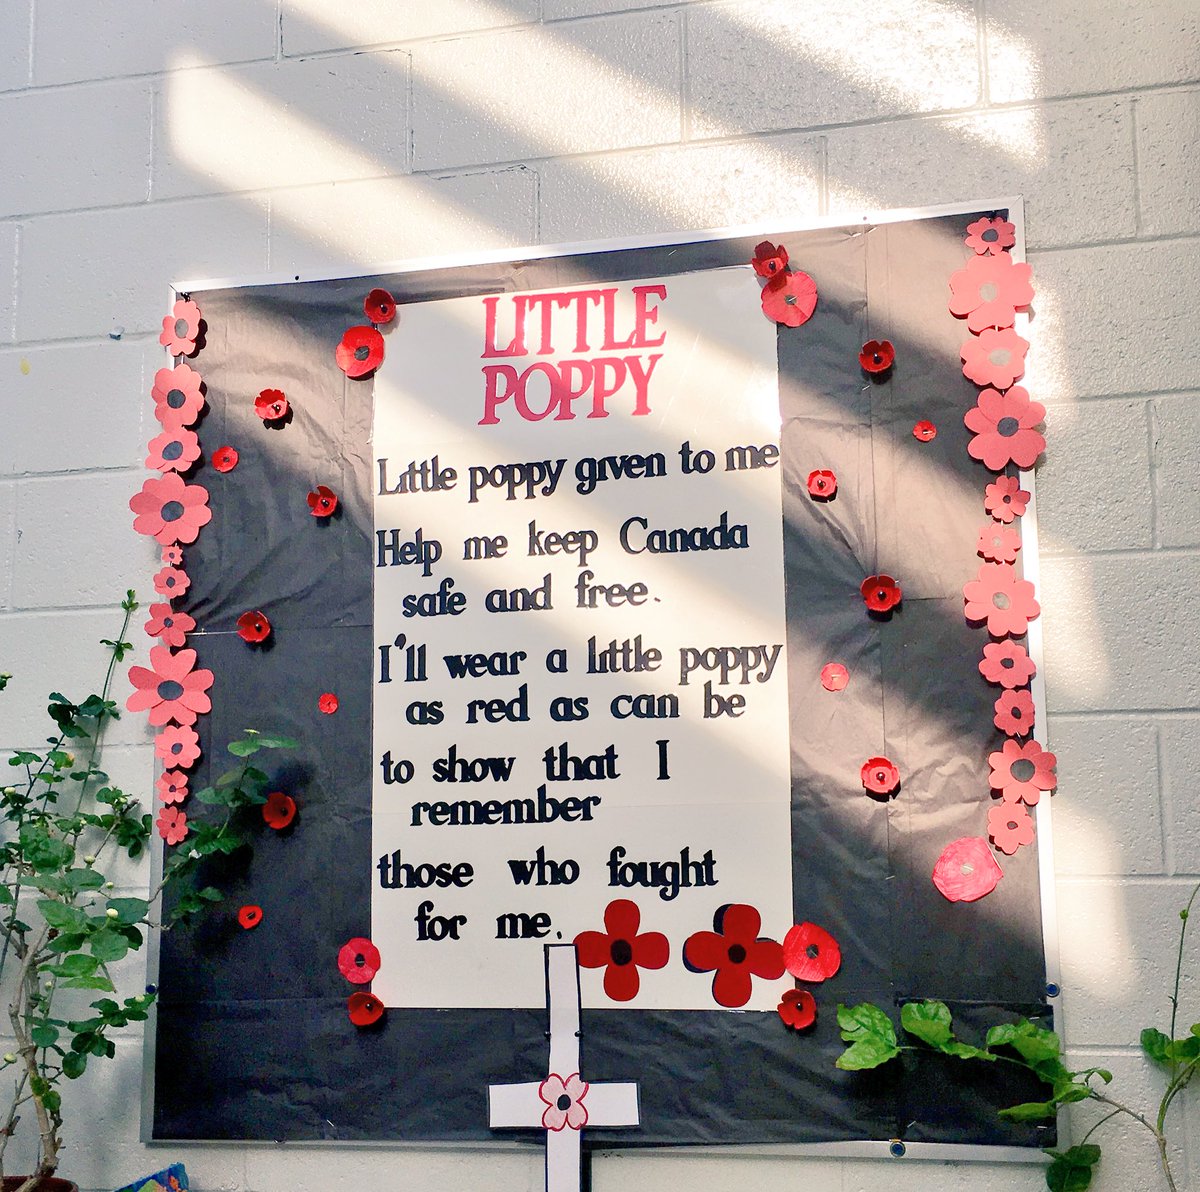 LITTLE
POPPY
Little poppy given to me
Help me keep Canada
safe and free.
I'll wear a little poppy
as red as can be
to show that I
remember
those who fought
for me.